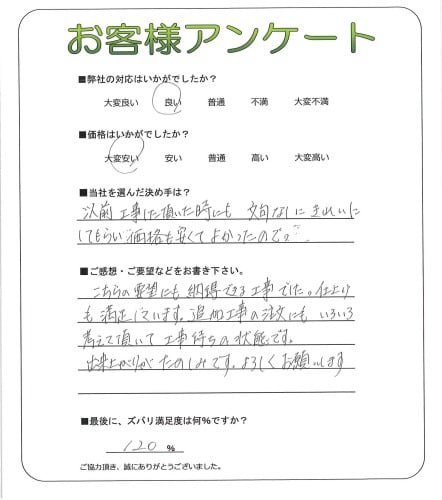 お客様アンケート
■弊社の対応はいかがでしたか？
大変良い 良い 普通 不満 大変不満
■価格はいかがでしたか？
大変安い 安い 普通 高い 大変高い
■当社を選んだ決め手は？
以前工事した頂いた時にも 文句なしにきれいに
してもらい価格も安くてよかったので
■ご感想・ご要望などをお書き下さい。
こちらの要望にも納得できる工事でした。仕上げ
も満足しています。追加工事の注文にもいろいろ
考えて頂いて工事待ちの状態です。
出来上がりがたのしみです。よろしくお願いします
■最後に、ズバリ満足度は何%ですか？
120 %
ご協力頂き、誠にありがとうございました。